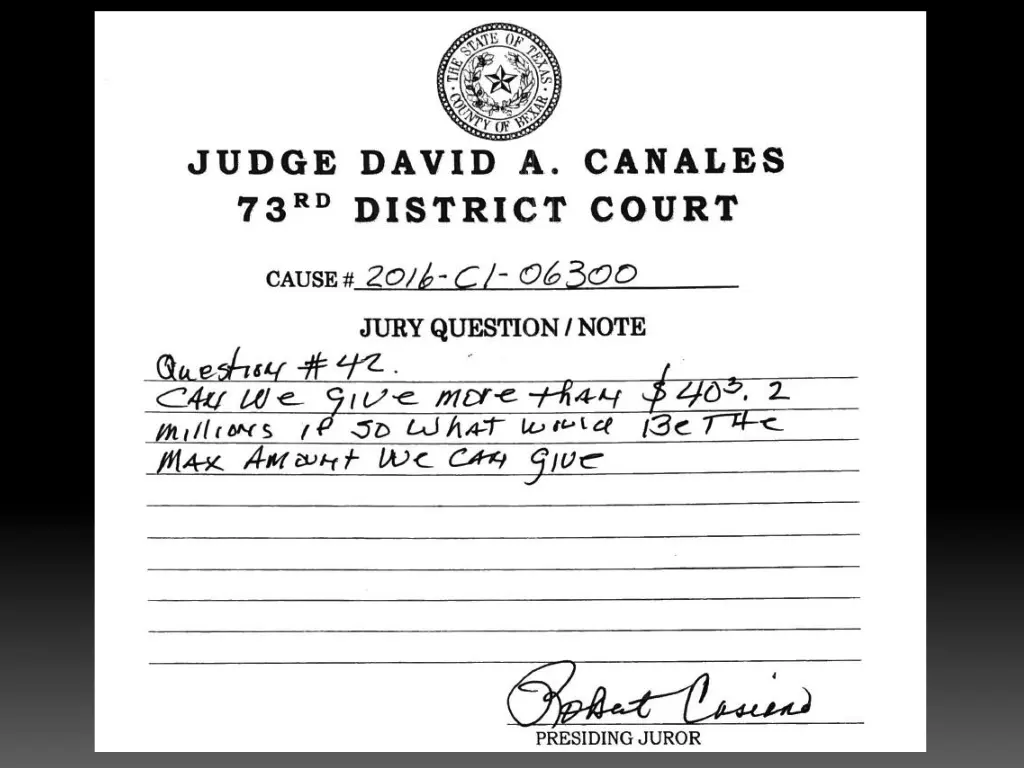 THE STATE OF TEXAS
COUNTY OF BEXAR
JUDGE DAVID A. CANALES
73RD DISTRICT COURT
CAUSE # 2016-CI-06300
JURY QUESTION / NOTE
Question #42.
CAN WE GIVE more than $403.2
millions if so what would BE THE
MAX AMOUNT WE CAN GIVE
Robert Casiano
PRESIDING JUROR